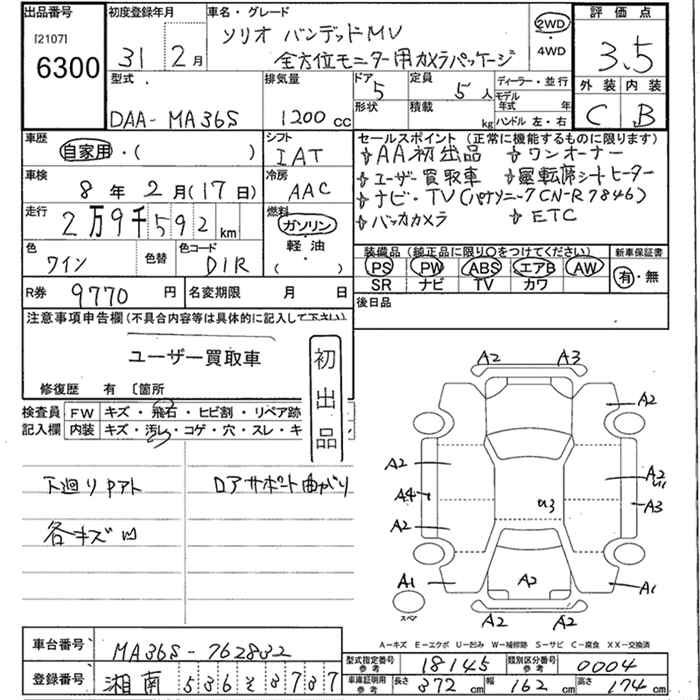 出品番号
[2107]
6300
初度登録年月
31 2月
車名・グレード
ソリオ バンデットMV
全方位モニター用カメラパッケージ
2WD
・
4WD
評価点
3.5
外装 内装
C B
型式
DAA-MA36S
排気量
1200cc
ドア
5
形状
定員
5人
積載
kg
ディーラー・並行
モデル年式 年
ハンドル 左・右
車歴
自家用・( )
シフト
IAT
車検
8年2月(17日)
冷房
AAC
走行
2万9千592km
燃料
ガソリン
軽油
( )
色
ワイン
色替
色コード
D1R
R券 9770円
名変期限 月 日
セールスポイント(正常に機能するものに限ります)
AA初出品 ワンオーナー
ユーザー買取車 運転席シートヒーター
ナビ・TV(パナソニックCN-R7846)
バックカメラ ETC
装備品(純正品に限り○をつけてください)
PS PW ABS エアB AW
SR ナビ TV カワ
新車保証書
有・無
後日品
注意事項申告欄(不具合内容等は具体的に記入して下さい)
ユーザー買取車
修復歴 有 〔箇所
初出品
検査員
記入欄
FW キズ・飛石・ヒビ割・リペア跡
内装 キズ・汚レ・コゲ・穴・スレ・キ
下廻りPアト
ロアサポート曲がり
各キズ凹
A2 A3
A2
A2
A2
A4
A3
U3
A2
A1
A2
A1
A2 A2
スペア
A-キズ E-エクボ U-凹み W-補修跡 S-サビ C-腐食 XX-交換済
車台番号
MA36S-762832
登録番号
湘南 536 そ 3737
型式指定番号
参考
18145
類別区分番号
参考
0004
車庫証明用
参考
長さ 372cm 幅 162cm 高さ 174cm